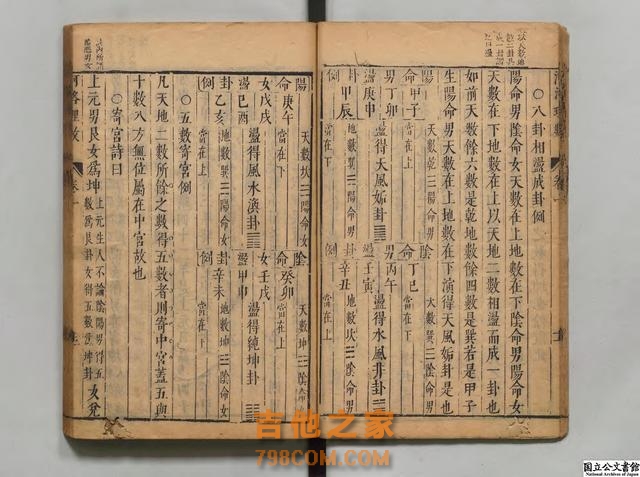 〇八卦相盪成卦例
陽命男陰命女天數在上地數在下陰命男陽命女
天數在下地數在上以天地二數相盪而成一卦也
如前天數餘六數是乾地數餘四數是巽若是甲子
生陽命男天數在上地數在下演得天風姤卦是也
陽命甲子
男丁卯
盪庚申
卦甲辰
例
天數乾☰陽命男
當在上
盪得天風姤卦
地數巽☴陽命男
當在下
陰命丁巳
男丙午
盪壬寅
卦辛丑
例
天數巽☴陰命男
當在下
盪得水風井卦
地數坎☵陰命男
當在上
陽命庚午
女戊戌
盪己酉
卦乙亥
例
天數坎☵陽命女
當在下
盪得風水渙卦
地數巽☴陽命女
當在上
陰命癸卯
女壬戌
盪甲申
卦辛未
例
天數坤☷陰命女
當在上
盪得純坤卦
地數坤☷陰命女
當在下
〇五數寄宮例
凡天地二數所餘之數得五數者則寄中宮蓋五與
十數八方無位屬在中宮故也
〇寄宮詩曰
上元男艮女爲坤
上元生人不論陰陽男得五
數爲艮卦女得五數爲坤卦
女兌
河洛理數
卷一
吉他之家
798COM.COM
国立公文書館
National Archives of Japan